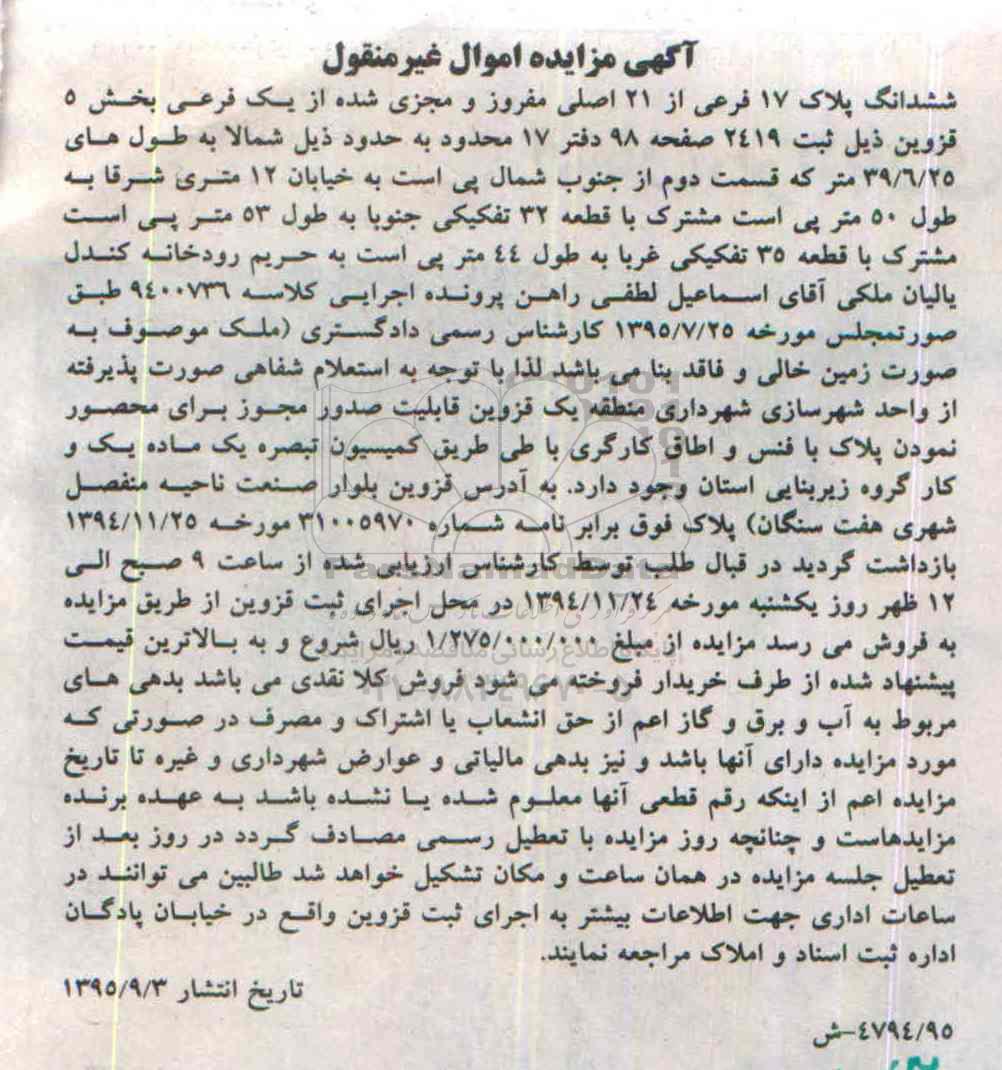 آگهی مزایده اموال غیرمنقول
ششدانگ پلاک ۱۷ فرعی از ۲۱ اصلی مفروز و مجزی شده از یک فرعی بخش ۵
قزوین ذیل ثبت ۲٤۱۹ صفحه ۹۸ دفتر ۱۷ محدود به حدود ذیل شمالا به طول های
۳۹/٦/۲۵ متر که قسمت دوم از جنوب شمال پی است به خیابان ۱۲ متری شرقا به
طول ۵۰ متر پی است مشترک با قطعه ۳۲ تفکیکی جنوبا به طول ۵۳ متر پی است
مشترک با قطعه ۳۵ تفکیکی غربا به طول ٤٤ متر پی است به حریم رودخانه کندل
یالیان ملکی آقای اسماعیل لطفی راهن پرونده اجرایی کلاسه ۹٤۰۰۷۳٦ طبق
صورتمجلس مورخه ۱۳۹۵/۷/۲۵ کارشناس رسمی دادگستری (ملک موصوف به
صورت زمین خالی و فاقد بنا می باشد لذا با توجه به استعلام شفاهی صورت پذیرفته
از واحد شهرسازی شهرداری منطقه یک قزوین قابلیت صدور مجوز برای محصور
نمودن پلاک با فنس و اطاق کارگری با طی طریق کمیسیون تبصره یک ماده یک و
کار گروه زیربنایی استان وجود دارد. به آدرس قزوین بلوار صنعت ناحیه منفصل
شهری هفت سنگان) پلاک فوق برابر نامه شماره ۳۱۰۰۵۹۷۰ مورخه ۱۳۹٤/۱۱/۲۵
بازداشت گردید در قبال طلب توسط کارشناس ارزیابی شده از ساعت ۹ صبح الی
۱۲ ظهر روز یکشنبه مورخه ۱۳۹٤/۱۱/۲٤ در محل اجرای ثبت قزوین از طریق مزایده
به فروش می رسد مزایده از مبلغ ۱/۲۷۵/۰۰۰/۰۰۰ ریال شروع و به بالاترین قیمت
پیشنهاد شده از طرف خریدار فروخته می شود فروش کلا نقدی می باشد بدهی های
مربوط به آب و برق و گاز اعم از حق انشعاب یا اشتراک و مصرف در صورتی که
مورد مزایده دارای آنها باشد و نیز بدهی مالیاتی و عوارض شهرداری و غیره تا تاریخ
مزایده اعم از اینکه رقم قطعی آنها معلوم شده یا نشده باشد به عهده برنده
مزایدهاست و چنانچه روز مزایده با تعطیل رسمی مصادف گردد در روز بعد از
تعطیل جلسه مزایده در همان ساعت و مکان تشکیل خواهد شد طالبین می توانند در
ساعات اداری جهت اطلاعات بیشتر به اجرای ثبت قزوین واقع در خیابان پادگان
اداره ثبت اسناد و املاک مراجعه نمایند.
تاریخ انتشار ۱۳۹۵/۹/۳
٤۷۹٤/۹۵-ش